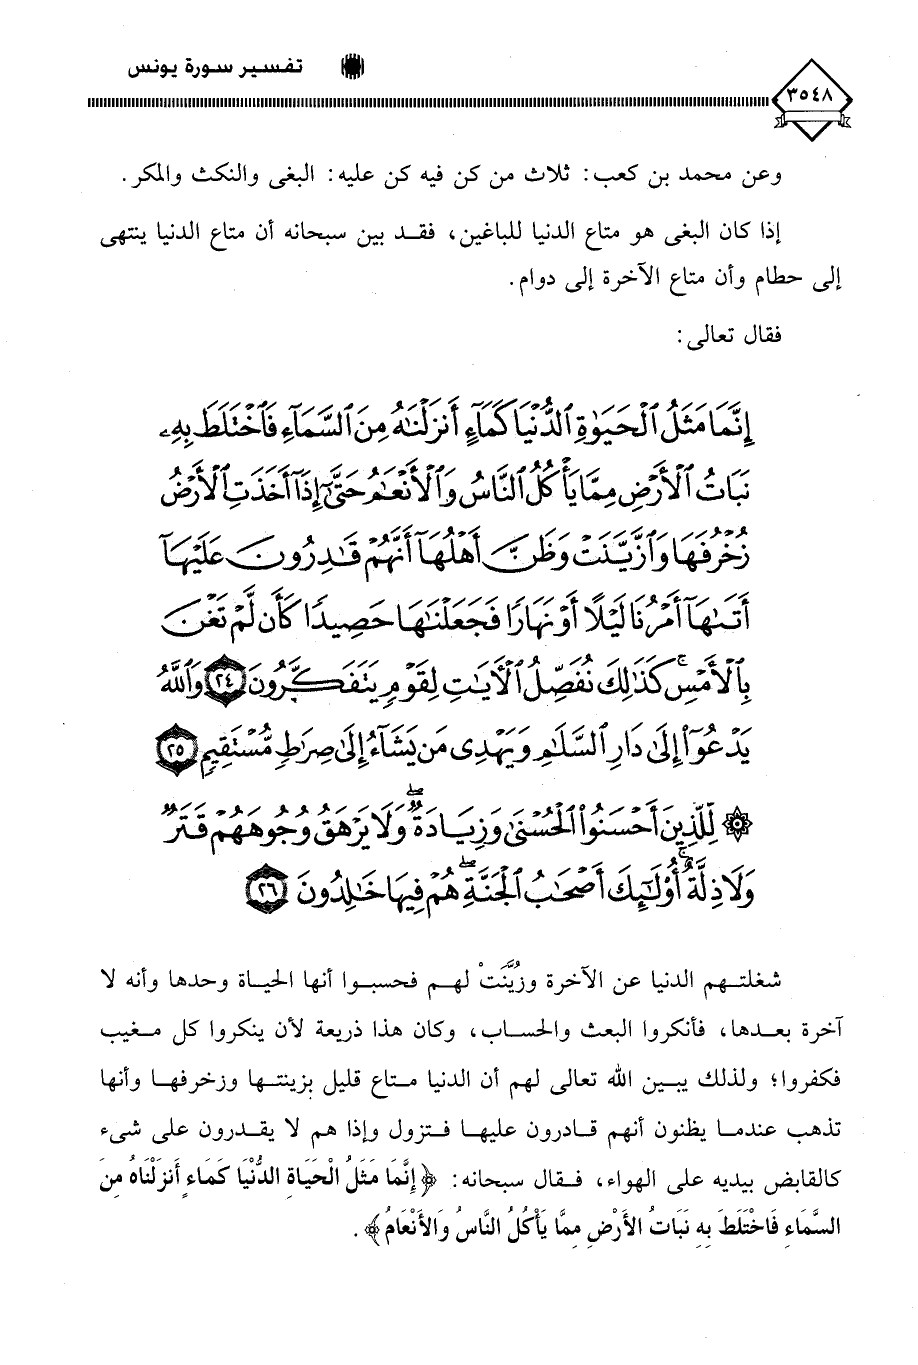 تفسير سورة يونس
٣٥٤٨
وعن محمد بن كعب: ثلاث من كن فيه كن عليه: البغى والنكث والمكر.
إذا كان البغى هو متاع الدنيا للباغين، فقد بين سبحانه أن متاع الدنيا ينتهى
إلى حطام وأن متاع الآخرة إلى دوام.
فقال تعالى:
إِنَّمَا مَثَلُ ٱلْحَيَوٰةِ ٱلدُّنْيَا كَمَآءٍ أَنزَلْنَٰهُ مِنَ ٱلسَّمَآءِ فَٱخْتَلَطَ بِهِۦ
نَبَاتُ ٱلْأَرْضِ مِمَّا يَأْكُلُ ٱلنَّاسُ وَٱلْأَنْعَٰمُ حَتَّىٰٓ إِذَآ أَخَذَتِ ٱلْأَرْضُ
زُخْرُفَهَا وَٱزَّيَّنَتْ وَظَنَّ أَهْلُهَآ أَنَّهُمْ قَٰدِرُونَ عَلَيْهَآ
أَتَىٰهَآ أَمْرُنَا لَيْلًا أَوْ نَهَارًا فَجَعَلْنَٰهَا حَصِيدًا كَأَن لَّمْ تَغْنَ
بِٱلْأَمْسِ ۚ كَذَٰلِكَ نُفَصِّلُ ٱلْءَايَٰتِ لِقَوْمٍ يَتَفَكَّرُونَ ٢٤ وَٱللَّهُ
يَدْعُوٓا۟ إِلَىٰ دَارِ ٱلسَّلَٰمِ وَيَهْدِى مَن يَشَآءُ إِلَىٰ صِرَٰطٍ مُّسْتَقِيمٍ ٢٥
۞ لِّلَّذِينَ أَحْسَنُوا۟ ٱلْحُسْنَىٰ وَزِيَادَةٌ ۖ وَلَا يَرْهَقُ وُجُوهَهُمْ قَتَرٌ
وَلَا ذِلَّةٌ ۚ أُو۟لَٰٓئِكَ أَصْحَٰبُ ٱلْجَنَّةِ ۖ هُمْ فِيهَا خَٰلِدُونَ ٢٦
شغلتهم الدنيا عن الآخرة وزُيِّنَتْ لهم فحسبوا أنها الحياة وحدها وأنه لا
آخرة بعدها، فأنكروا البعث والحساب، وكان هذا ذريعة لأن ينكروا كل مغيب
فكفروا؛ ولذلك يبين الله تعالى لهم أن الدنيا متاع قليل بزينتها وزخرفها وأنها
تذهب عندما يظنون أنهم قادرون عليها فتزول وإذا هم لا يقدرون على شىء
كالقابض بيديه على الهواء، فقال سبحانه: ﴿إِنَّمَا مَثَلُ الْحَيَاةِ الدُّنْيَا كَمَاءٍ أَنزَلْنَاهُ مِنَ
السَّمَاءِ فَاخْتَلَطَ بِهِ نَبَاتُ الأَرْضِ مِمَّا يَأْكُلُ النَّاسُ وَالأَنْعَامُ﴾.